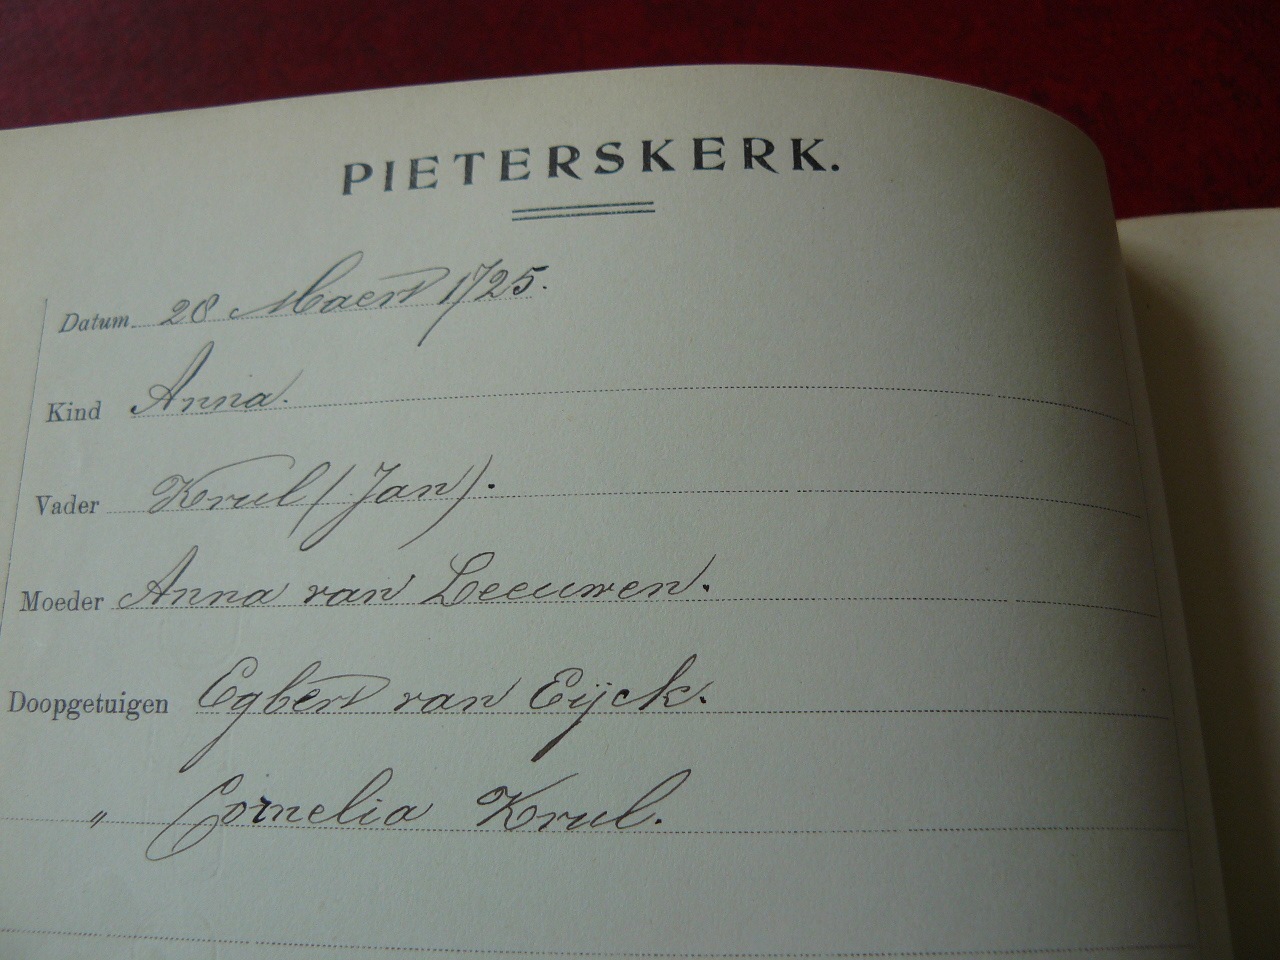 PIETERSKERK.
Datum 28 Maert 1725.
Kind Anna.
Vader Krul (Jan).
Moeder Anna van Leeuwen.
Doopgetuigen Egbert van Eijck.
" Cornelia Krul.